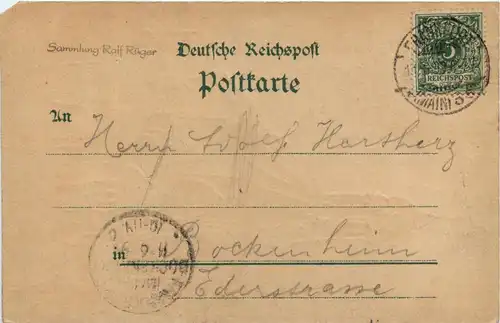 Sammlung Ralf Rüger
Deutsche Reichspost
Postkarte
5
REICHSPOST
(MAIN)
An
Herrn Adolf Hartherz
in Bockenheim
Ederstrasse